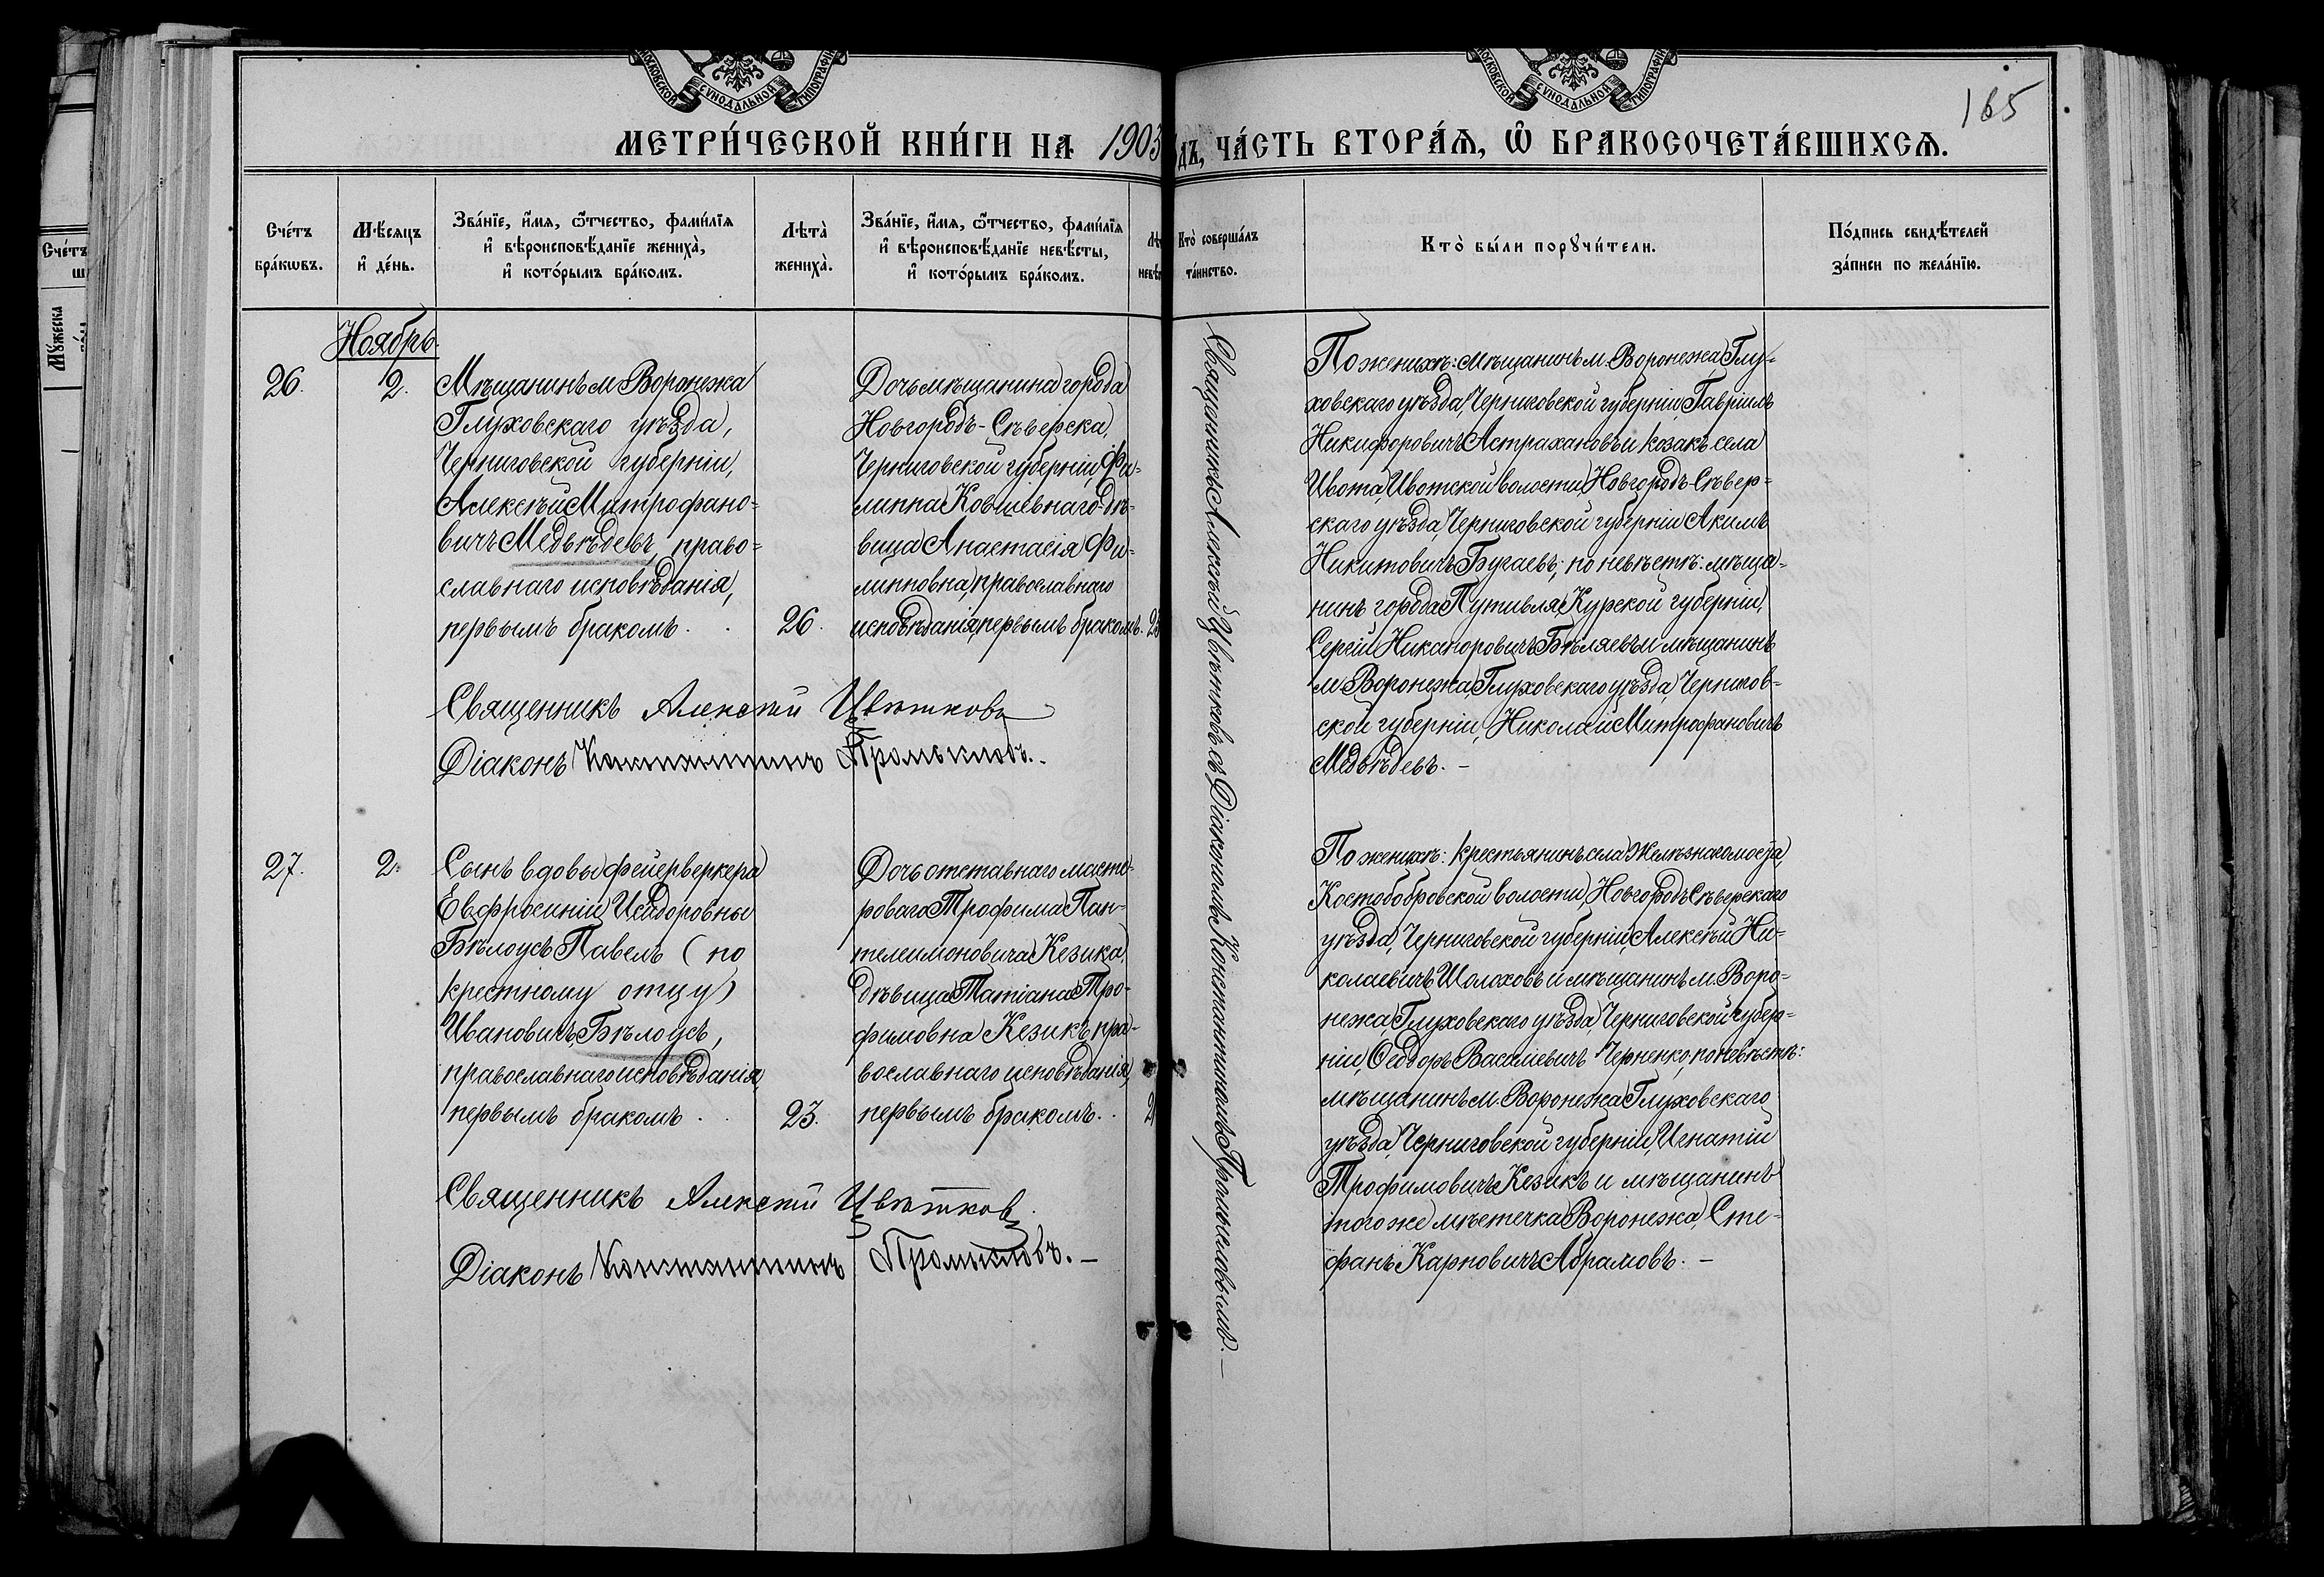 МОСКОВСКОЙ СУНОДАЛЬНОЙ ТИПОГРАФІИ
МОСКОВСКОЙ СУНОДАЛЬНОЙ ТИПОГРАФІИ
165
МЕТРИ́ЧЕСКОЙ КНИ́ГИ НА 1903
ДЪ, ЧА́СТЬ ВТОРА́Я, Ѽ БРАКОСОЧЕТА́ВШИХСЯ.
Сче́тъ
бра́кѡвъ.
Мѣ́сяцъ
и҆ де́нь.
Зва́нїе, и҆́мя, ѻ҆́тчество, фами́лїя
и҆ вѣроисповѣ́данїе жениха̀,
и҆ кото́рымъ бра́комъ.
Лѣта̀
жениха̀.
Зва́нїе, и҆́мя, ѻ҆́тчество, фами́лїя
и҆ вѣроисповѣ́данїе невѣ́сты,
и҆ кото́рымъ бра́комъ.
Кто̀ соверша́лъ
та́инство.
Кто̀ бы́ли порꙋчи́тели.
По́дпись свидѣ́телей
за́писи по жела́нїю.
Ноябрь.
26.
2.
Мѣщанинъ м. Воронежа
Глуховскаго уѣзда,
Черниговской губерніи,
Алексѣй Митрофано=
вичъ Медвѣдевъ, право=
славнаго исповѣданія,
первымъ бракомъ. .
26.
Дочь мѣщанина города
Новгородъ-Сѣверска,
Черниговской губерніи, Фи=
липпа дѣ=
вица Анастасія Фи=
липповна, православнаго
исповѣданія, первымъ бракомъ.
Священникъ Алексѣй Цвѣтковъ
Діаконъ Константинъ Промысловъ.
Священникъ Алексѣй Цвѣтковъ съ Діакономъ Константиномъ Промысловымъ. —
По женихѣ: мѣщанинъ м. Воронежа, Глу=
ховскаго уѣзда, Черниговской губерніи, Гавріилъ
Никифоровичъ Астрахановъ и козакъ села
Ивота, Ивотской волости, Новгородъ-Сѣвер=
скаго уѣзда, Черниговской губерніи Акимъ
Никитовичъ Бугаевъ; по невѣстѣ: мѣща=
нинъ города Путивля, Курской губерніи,
Сергій Никаноровичъ Бѣляевъ и мѣщанинъ
м. Воронежа, Глуховскаго уѣзда, Чернигов=
ской губерніи, Николай Митрофановичъ
Медвѣдевъ. —
27.
2.
Сынъ вдовы фейерверкера
Евфросиніи Исидоровны
Бѣлоусъ Павелъ (по
крестному отцу)
Ивановичъ Бѣлоусъ,
православнаго исповѣданія,
первымъ бракомъ. .
23.
Дочь отставнаго масте=
роваго Трофима Пан=
телеимоновича Кезика,
дѣвица Татіана Тро=
фимовна Кезикъ, пра=
вославнаго исповѣданія,
первымъ бракомъ. .
Священникъ Алексѣй Цвѣтковъ
Діаконъ Константинъ Промысловъ. —
По женихѣ: крестьянинъ села Желѣзнаго моста,
Костобобровской волости, Новгородъ Сѣверскаго
уѣзда, Черниговской губерніи, Алексѣй Ни=
колаевичъ Шолоховъ и мѣщанинъ м. Воро=
нежа, Глуховскаго уѣзда, Черниговской губер=
ніи, Ѳеодоръ Василіевичъ Черненко, по невѣстѣ:
мѣщанинъ м. Воронежа Глуховскаго
уѣзда, Черниговской губерніи, Игнатій
Трофимовичъ Кезикъ и мѣщанинъ
того же мѣстечка Воронежа, Сте=
фанъ Карповичъ Абрамовъ. —